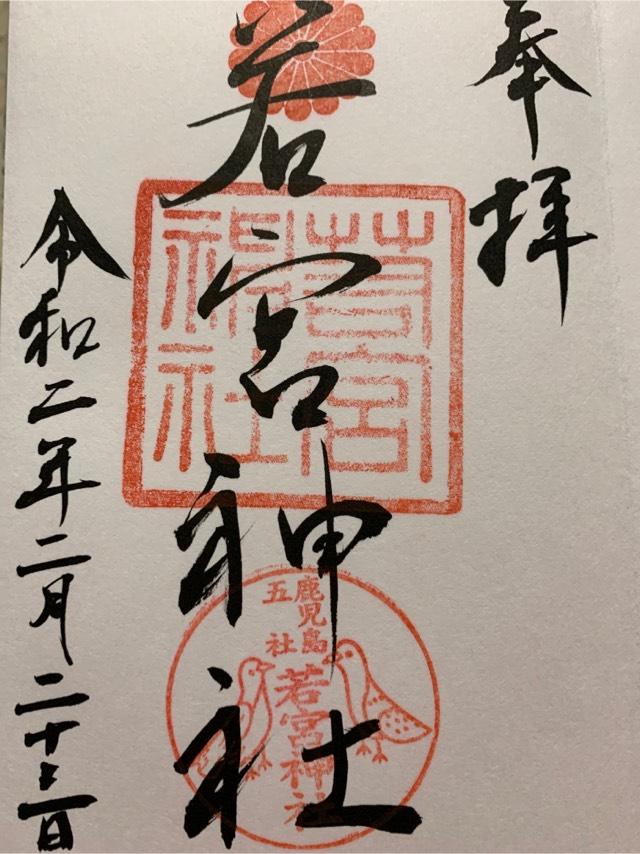 奉拝
若宮神社
若宮
神社
鹿児島
五社
若宮神社
令和二年二月二十三日